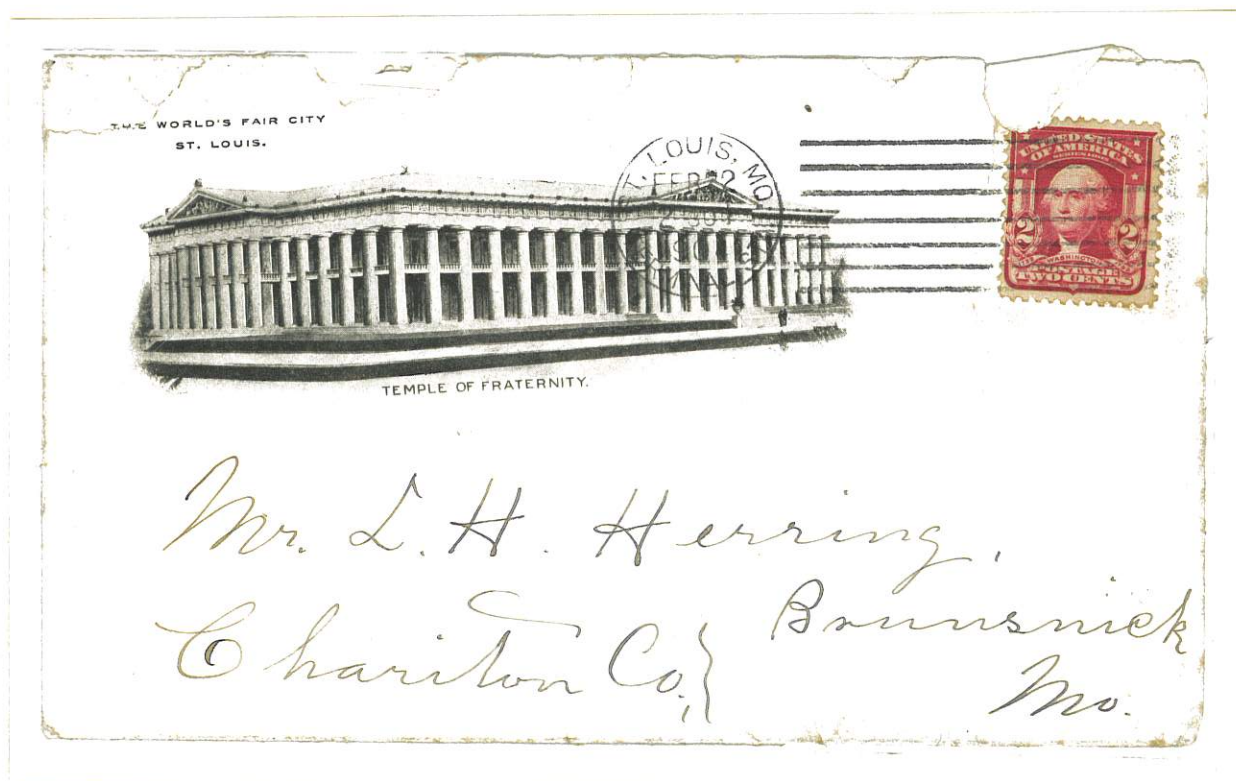 THE WORLD'S FAIR CITY
ST. LOUIS.
LOUIS, MO
FEB 22
UNITED STATES
OF AMERICA
2 2
WASHINGTON
POSTAGE
TWO CENTS
TEMPLE OF FRATERNITY.
Mr. L. H. Herring,
Brunswick
Chariton Co.,
Mo.